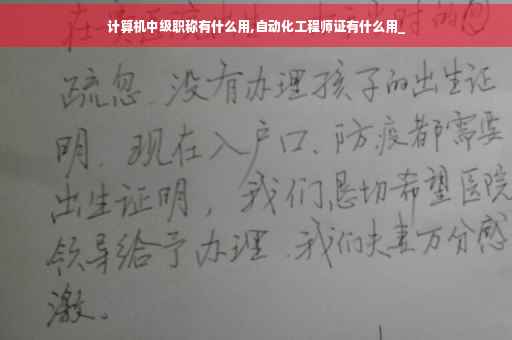 计算机中级职称有什么用,自动化工程师证有什么用_
疏忽、没有办理孩子的出生证
明、现在入户口、防疫都需要
出生证明，我们恳切希望医院
领导给予办理、我们夫妻万分感
激。